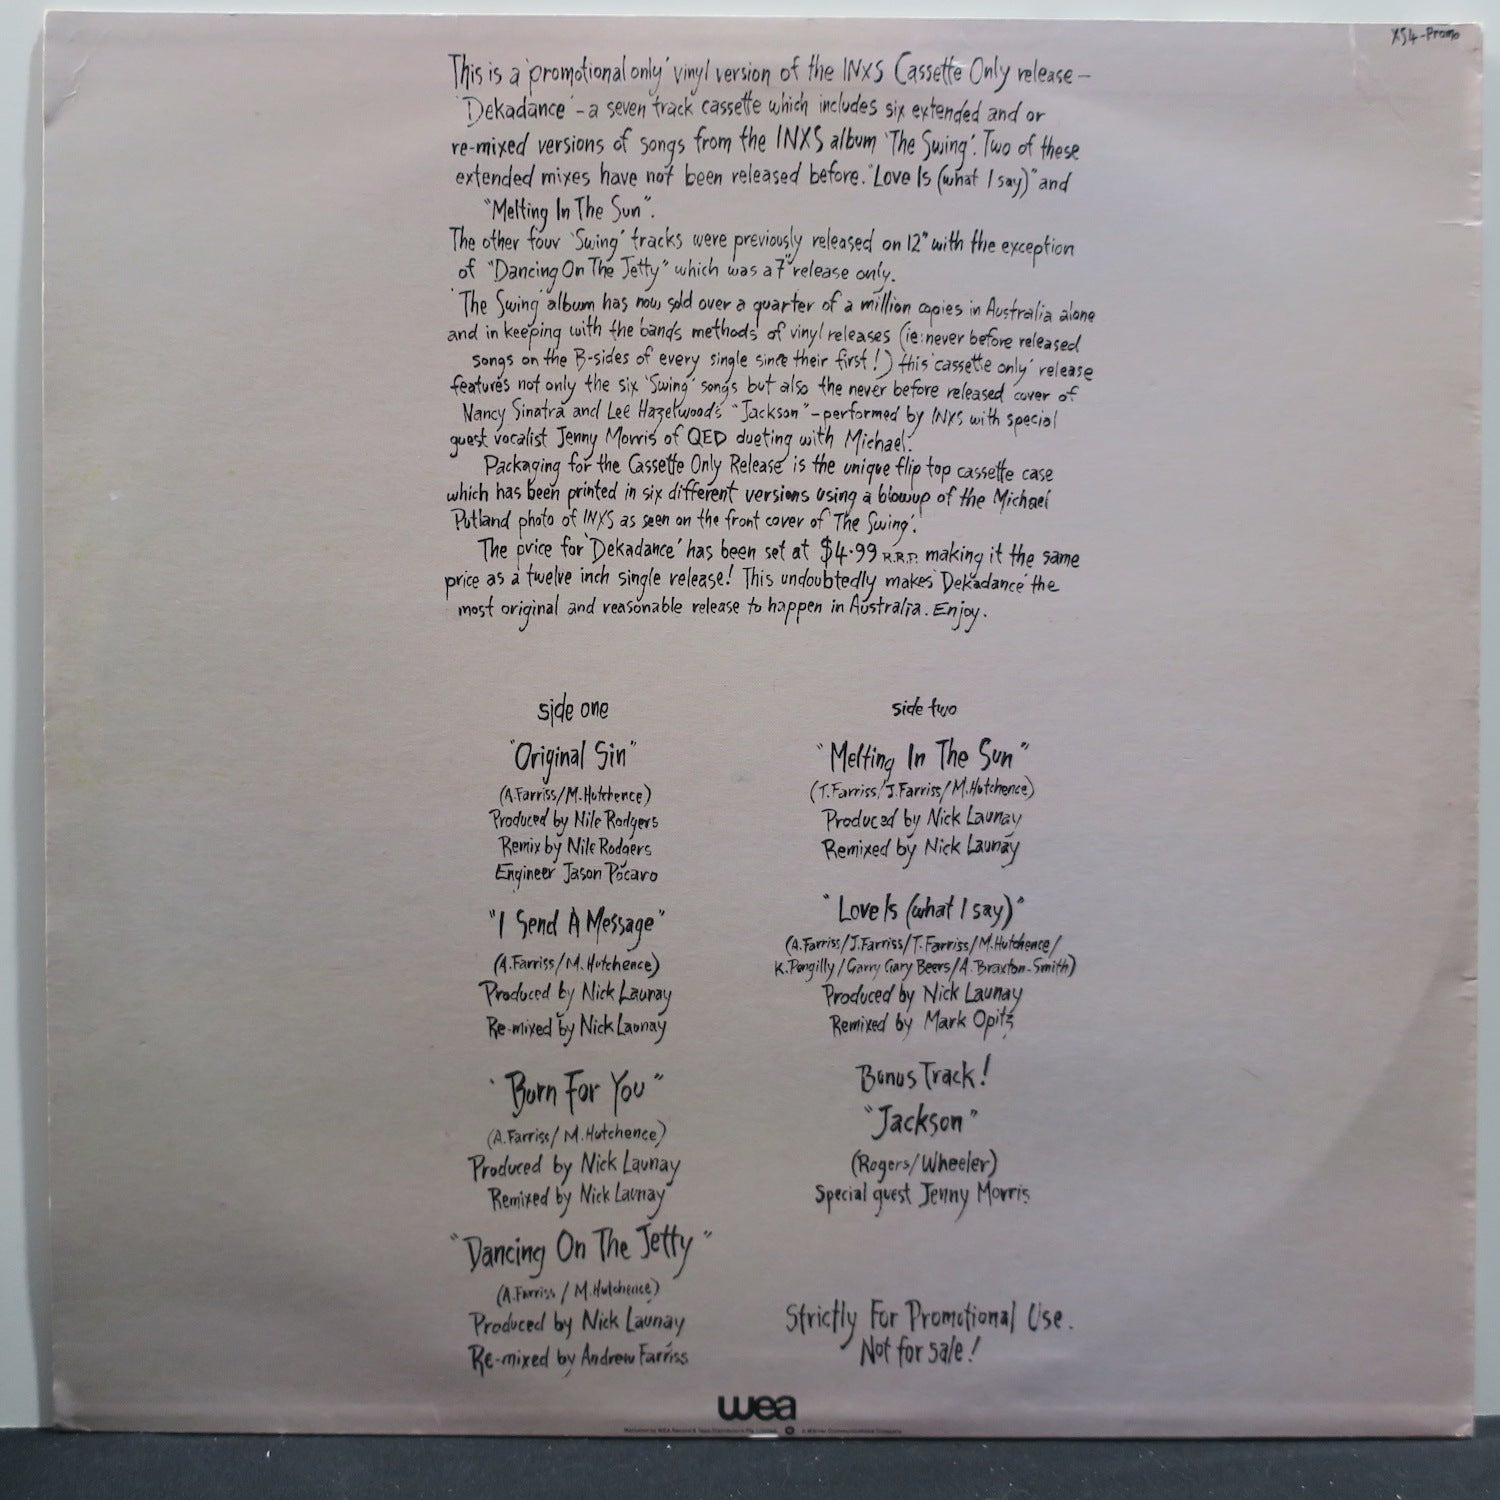 XS4-Promo
This is a 'promotional only' vinyl version of the INXS Cassette Only release –
'Dekadance' – a seven track cassette which includes six extended and or
re-mixed versions of songs from the INXS album 'The Swing'. Two of these
extended mixes have not been released before. "Love Is (what I say)" and
"Melting In The Sun".
The other four 'Swing' tracks were previously released on 12" with the exception
of "Dancing On The Jetty" which was a 7" release only.
'The Swing' album has now sold over a quarter of a million copies in Australia alone
and in keeping with the bands methods of vinyl releases (ie: never before released
songs on the B-sides of every single since their first!) this 'cassette only' release
features not only the six 'Swing' songs but also the never before released cover of
Nancy Sinatra and Lee Hazelwood's "Jackson" – performed by INXS with special
guest vocalist Jenny Morris of QED dueting with Michael.
Packaging for the Cassette Only Release is the unique flip top cassette case
which has been printed in six different versions using a blowup of the Michael
Putland photo of INXS as seen on the front cover of 'The Swing'.
The price for 'Dekadance' has been set at $4·99 R.R.P. making it the same
price as a twelve inch single release! This undoubtedly makes 'Dekadance' the
most original and reasonable release to happen in Australia. Enjoy.
side one
"Original Sin"
(A.Farriss/M.Hutchence)
Produced by Nile Rodgers
Remix by Nile Rodgers
Engineer Jason Pocaro
"I Send A Message"
(A.Farriss/M.Hutchence)
Produced by Nick Launay
Re-mixed by Nick Launay
'Burn For You"
(A.Farriss/M.Hutchence)
Produced by Nick Launay
Remixed by Nick Launay
"Dancing On The Jetty"
(A.Farriss/M.Hutchence)
Produced by Nick Launay
Re-mixed by Andrew Farriss
side two
"Melting In The Sun"
(T.Farriss/J.Farriss/M.Hutchence)
Produced by Nick Launay
Remixed by Nick Launay
"Love Is (what I say)"
(A.Farriss/J.Farriss/T.Farriss/M.Hutchence/
K.Pengilly/Garry Gary Beers/A.Braxton-Smith)
Produced by Nick Launay
Remixed by Mark Opitz
Bonus Track!
"Jackson"
(Rogers/Wheeler)
Special guest Jenny Morris
Strictly For Promotional Use.
Not for sale!
wea